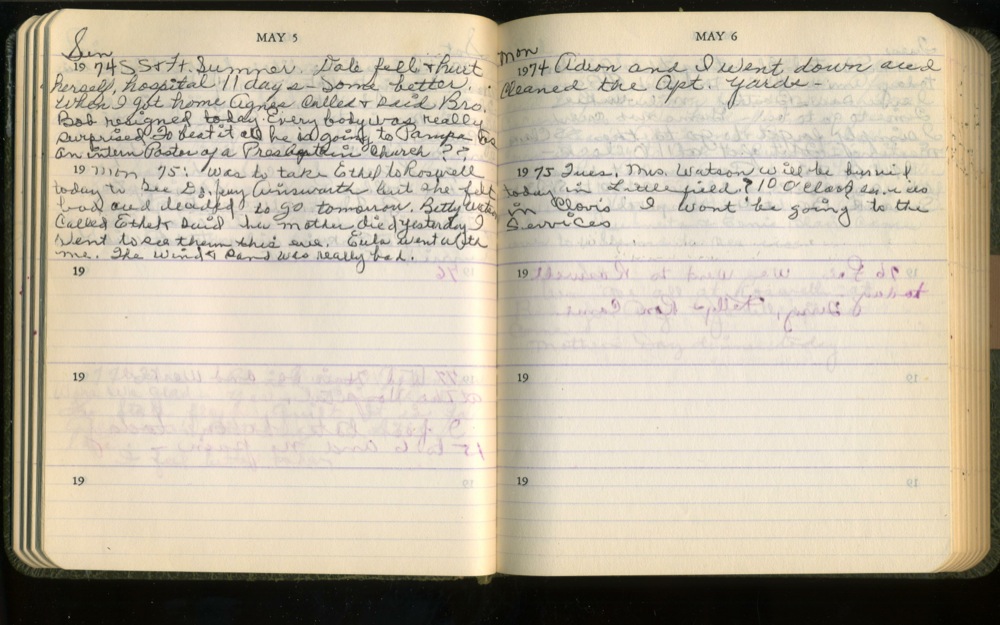 MAY 5
Sun
1974 SS & Ft. Sumner. Dale fell & hurt
herself, hospital 11 days - Some better.
When I got home Agnes Called & said Bro.
Bob resigned today. Every body was really
surprised. To beat it all he is going to Pampa as
an intern Pastor of a Church ??
19 mon 75: Was to take Ethel to Roswell
today to see Ainsworth but she felt
bad and decided to go tomorrow. Betty Watson
Called Ethel & said her mother died yesterday I
went to see them this eve. Eula went with
me. The wind & sand was really bad.
19
19
19
MAY 6
mon
1974 and I went down and
Cleaned the Apt. Yards -
1975 Tues. Mrs. Watson will be buried
today in Little field? 10 O'clock
in Clovis I wont be going to the
Services
19
19
19